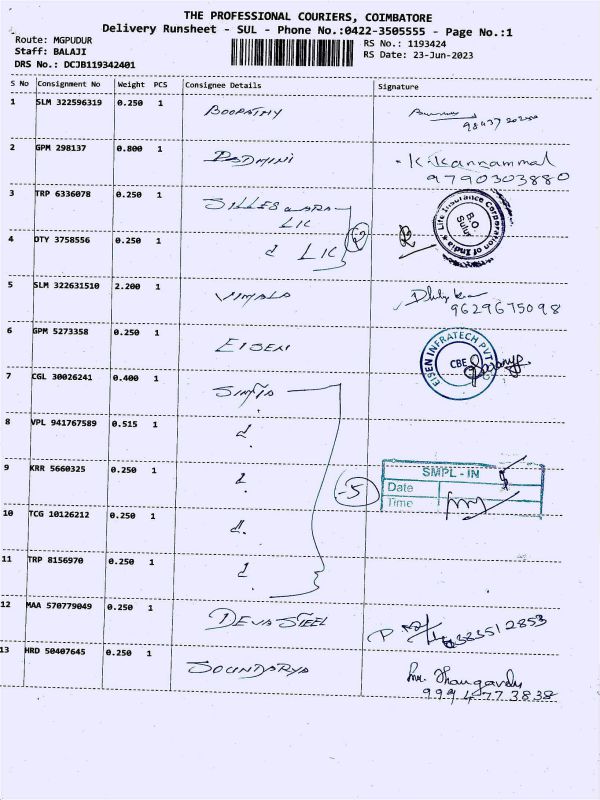 THE PROFESSIONAL COURIERS, COIMBATORE
Delivery Runsheet - SUL - Phone No.:0422-3505555 - Page No.:1
Route: MGPUDUR
RS No.: 1193424
Staff: BALAJI
RS Date: 23-Jun-2023
DRS No.: DCJB119342401
S No Consignment No Weight PCS Consignee Details Signature
1 SLM 322596319 0.250 1 BOOPATHY
2 GPM 298137 0.800 1 PADMINI K. Kannammal
9790303880
3 TRP 6336078 0.250 1 LIC
Life Insurance Corporation of India ★ B.O Sulur
4 DTY 3758556 0.250 1 d LIC 2
5 SLM 322631510 2.200 1 VIMALA
9629675098
6 GPM 5273358 0.250 1 EISEN
EISEN INFRATECH PVT CBE
7 CGL 30026241 0.400 1
8 VPL 941767589 0.515 1 d.
9 KRR 5660325 0.250 1 d. -5
SMPL - IN
Date
Time
10 TCG 10126212 0.250 1 d.
11 TRP 8156970 0.250 1 d.
12 MAA 570779049 0.250 1 DEVA STEEL
13 HRD 50407645 0.250 1 SOUNDARYA
9994773838